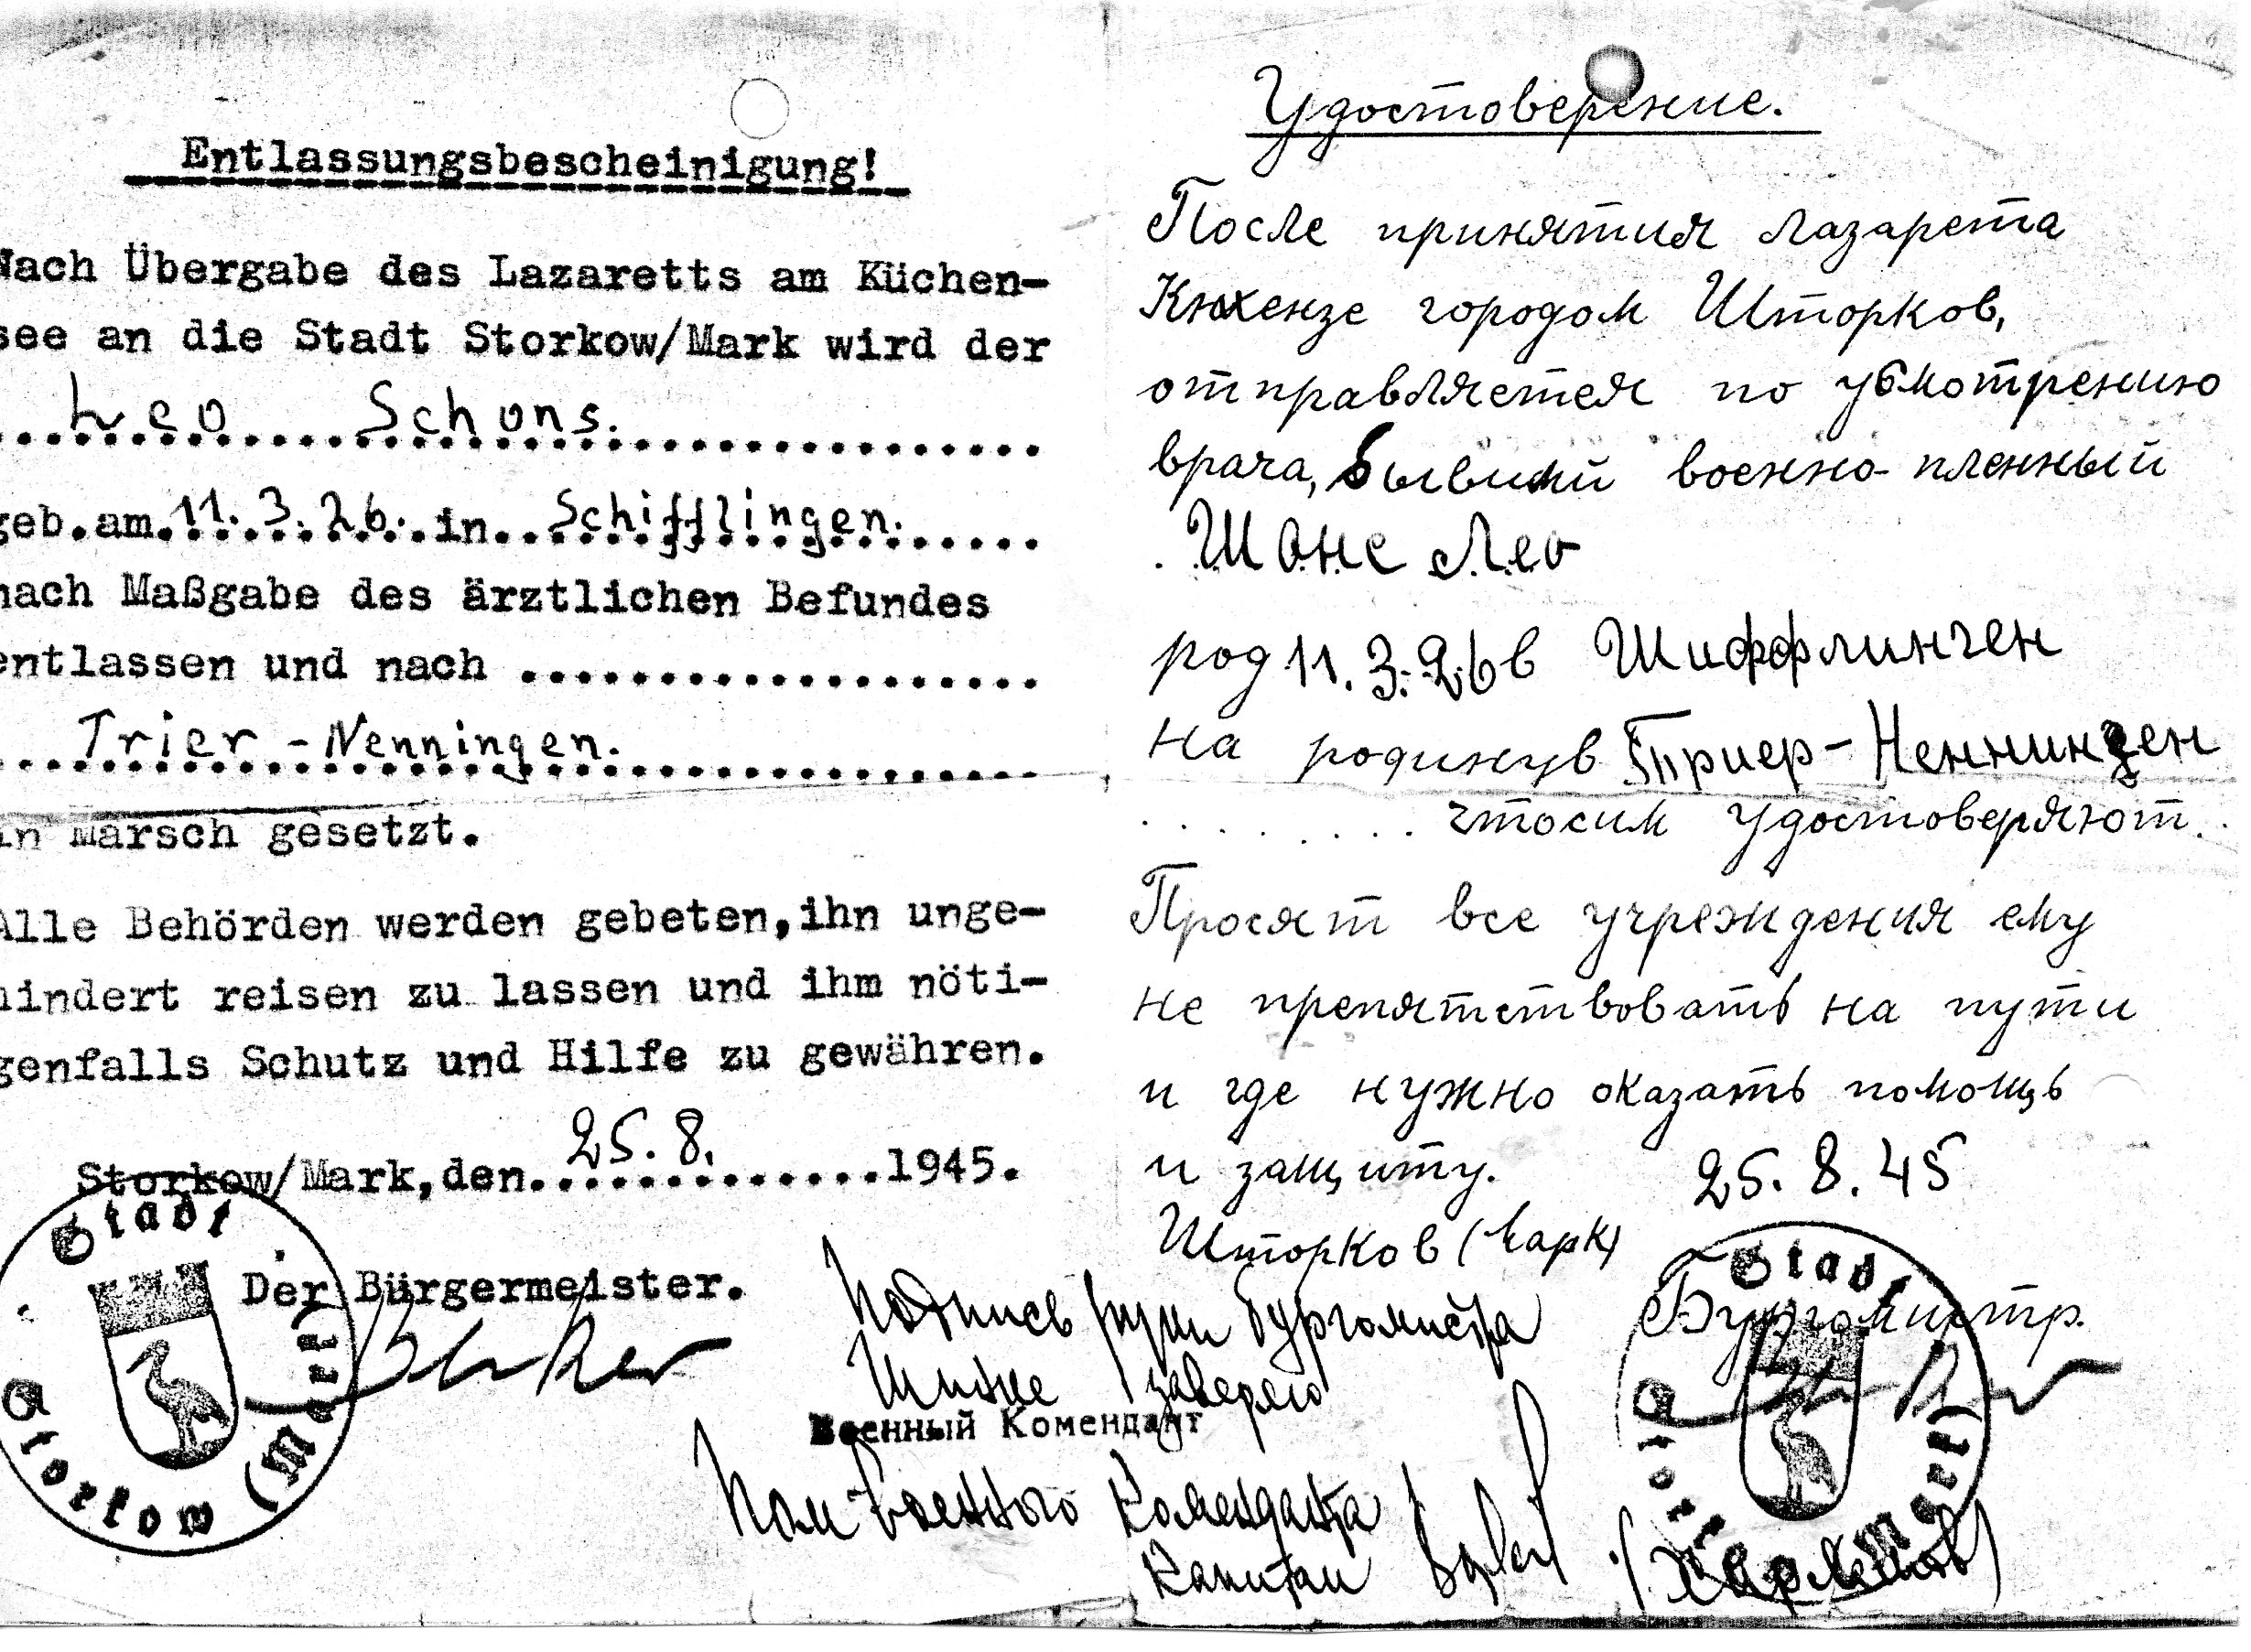 Entlassungsbescheinigung!
Nach Übergabe des Lazaretts am Küchen-
see an die Stadt Storkow/Mark wird der
Leo Schons.
geb.am.11.3.26.in Schifflingen.
nach Maßgabe des ärztlichen Befundes
entlassen und nach
Trier-Nenningen.
in Marsch gesetzt.
Alle Behörden werden gebeten,ihn unge-
hindert reisen zu lassen und ihm nöti-
genfalls Schutz und Hilfe zu gewähren.
Storkow/Mark,den 25.8. 1945.
Der Bürgermeister.
Stadt Storkow (Mark)
Удостоверение.
После принятия лазарета
Кюхензе городом Шторков,
отправляется по усмотрению
врача, бывший военно-пленный
Шонс Лео
род 11.3.26 в Шиффлинген
на родину в Триер-Неннинген
чтосим удостоверяют
Просят все учреждения ему
не препятствовать на пути
и где нужно оказать помощь
и защиту.
25.8.45
Шторков (Марк)
Бургомистр.
Подпись руки бургомистра
заверяю
Военный Комендант
Пом Военного Коменданта
Капитан
Stadt Storkow (Mark)